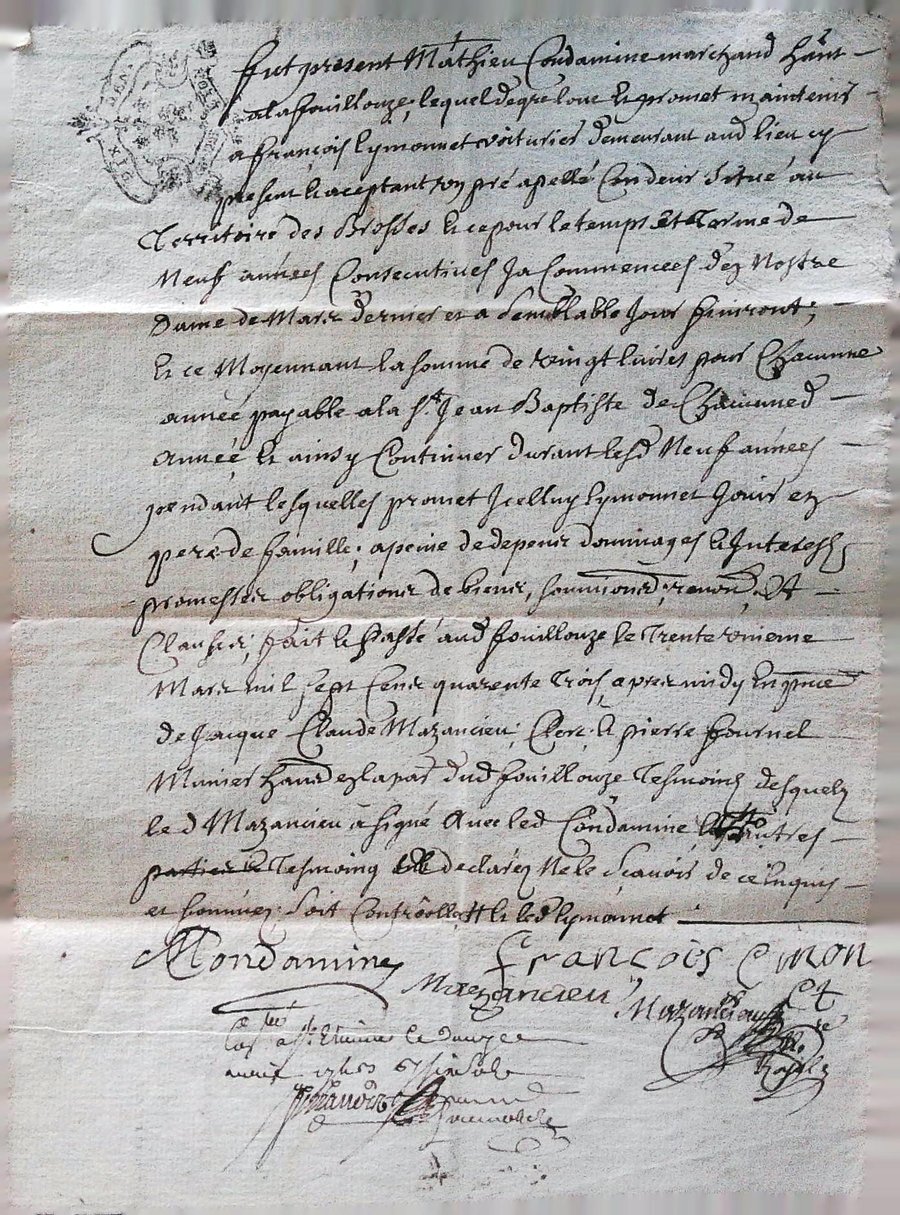 fut present Mathieu Condamine marchand hant
a la fouillouze, lequel de gre loue et promet maintenir
a françois lymonnet voiturier demeurant aud lieu cy
present et aceptant son pré apellé Condeur situé au
Territoire des Brosses et ce pour le temps et terme de
Neuf années Consecutives Ja Commencees dez Nostre
dame de Mars dernier et a semblable Jour finiront;
Et ce Moyennant la somme de vingt livres pour Chacunne
année payable a la st Jean Baptiste de Chacunned
année et ainsy Continuer durant lesd Neuf années
pendant lesquelles promet Jcelluy lymonnet Jouir en
pere de famille; a peine de depens dommages et Interests
promesses obligations de biens, soumions, renon, et
Clauses, fait et passé aud fouillouze le Trente unieme
Mars mil sept cens quarente Trois, apres midy En pnce
de Jacque Claude Mazancieu, Clerc, et pierre fournel
Manier en la par dud fouillouze Tesmoins desquels
le d Mazancieu a signé Avec led Condamine, autres
parties et Tesmoing declarez Ne le Scavoir de ce Enquis
et sommez. Soit Controollé et led lymonnet
MCondamine françois limon
Mazancieu Mazancieu
a st Etienne le douze